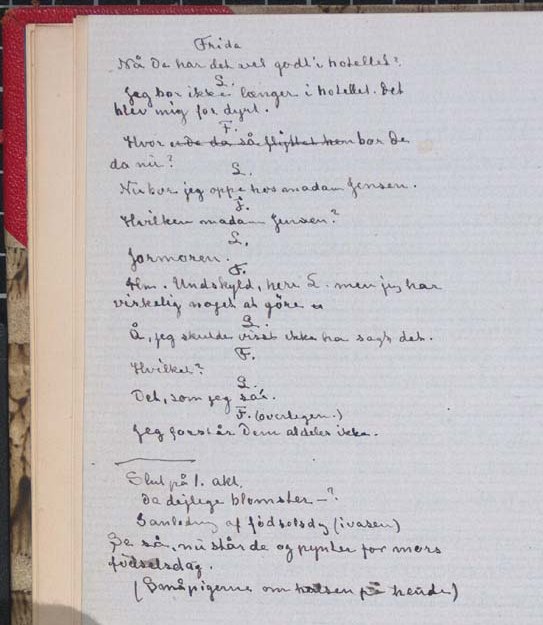 Frida
Nå De har det vel godt i hotellet?
L.
Jeg bor ikke længer i hotellet. Det
blev mig for dyrt.
F.
Hvor er De da så flyttet hen bor De
da nu?
L.
Nu bor jeg oppe hos madam Jensen.
F.
Hvilken madam Jensen?
L.
Jormoren.
F.
Hm. Undskyld, herr L. men jeg har
virkelig noget at göre
L.
Å, jeg skulde visst ikke ha sagt det.
F.
Hvilket?
L.
Det, som jeg sa.
F. (overlegen.)
Jeg forstår Dem aldeles ikke.
Slut på 1. akt.
De dejlige blomster —?
Sanledning af födselsdg (i vasen)
Se så, nu står de og pynter for mors
födselsdag.
(Småpigerne om halsen på hende)